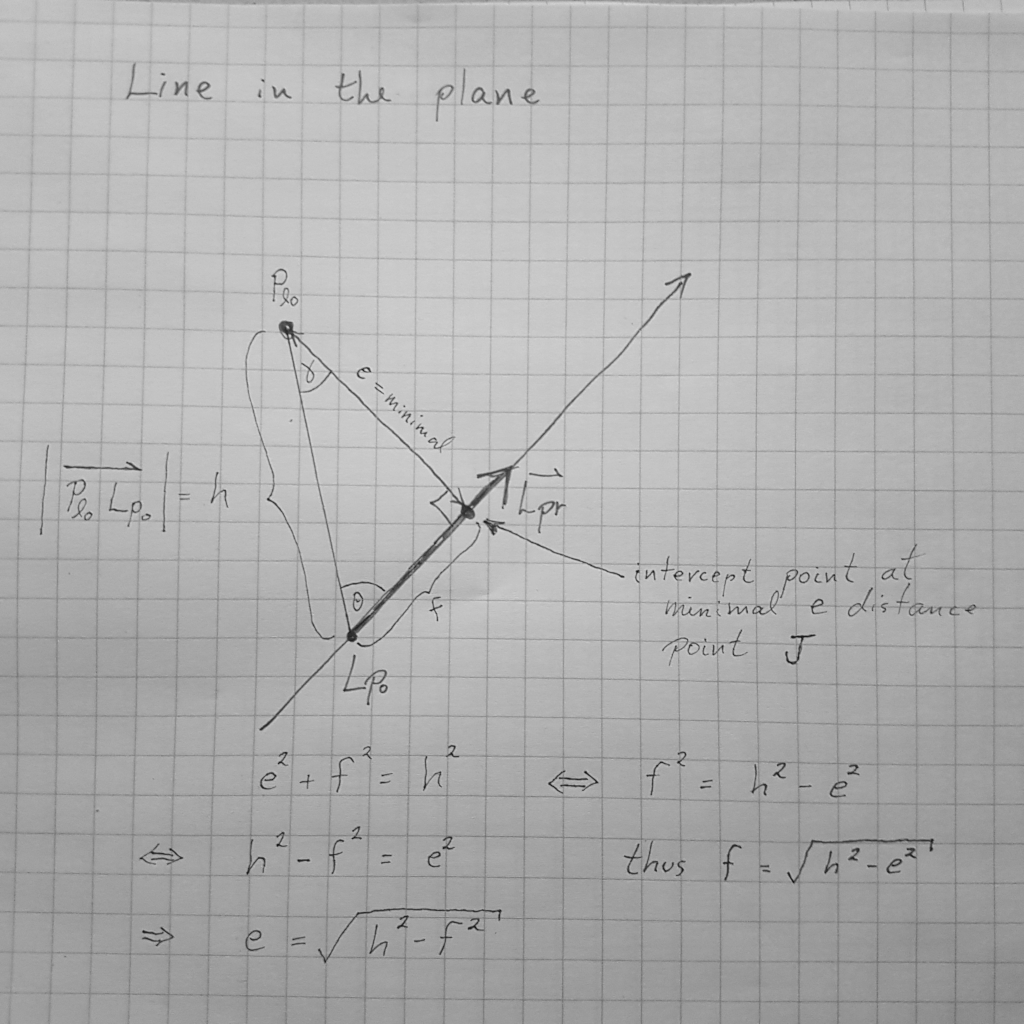 Line in the plane
Pℓ₀
γ
e = minimal
|Pℓ₀ Lp₀| = h
Lpr
θ
f
intercept point at
minimal e distance
point J
Lp₀
e² + f² = h² ⇔ f² = h² - e²
⇔ h² - f² = e² thus f = √(h² - e²)
⇒ e = √(h² - f²)